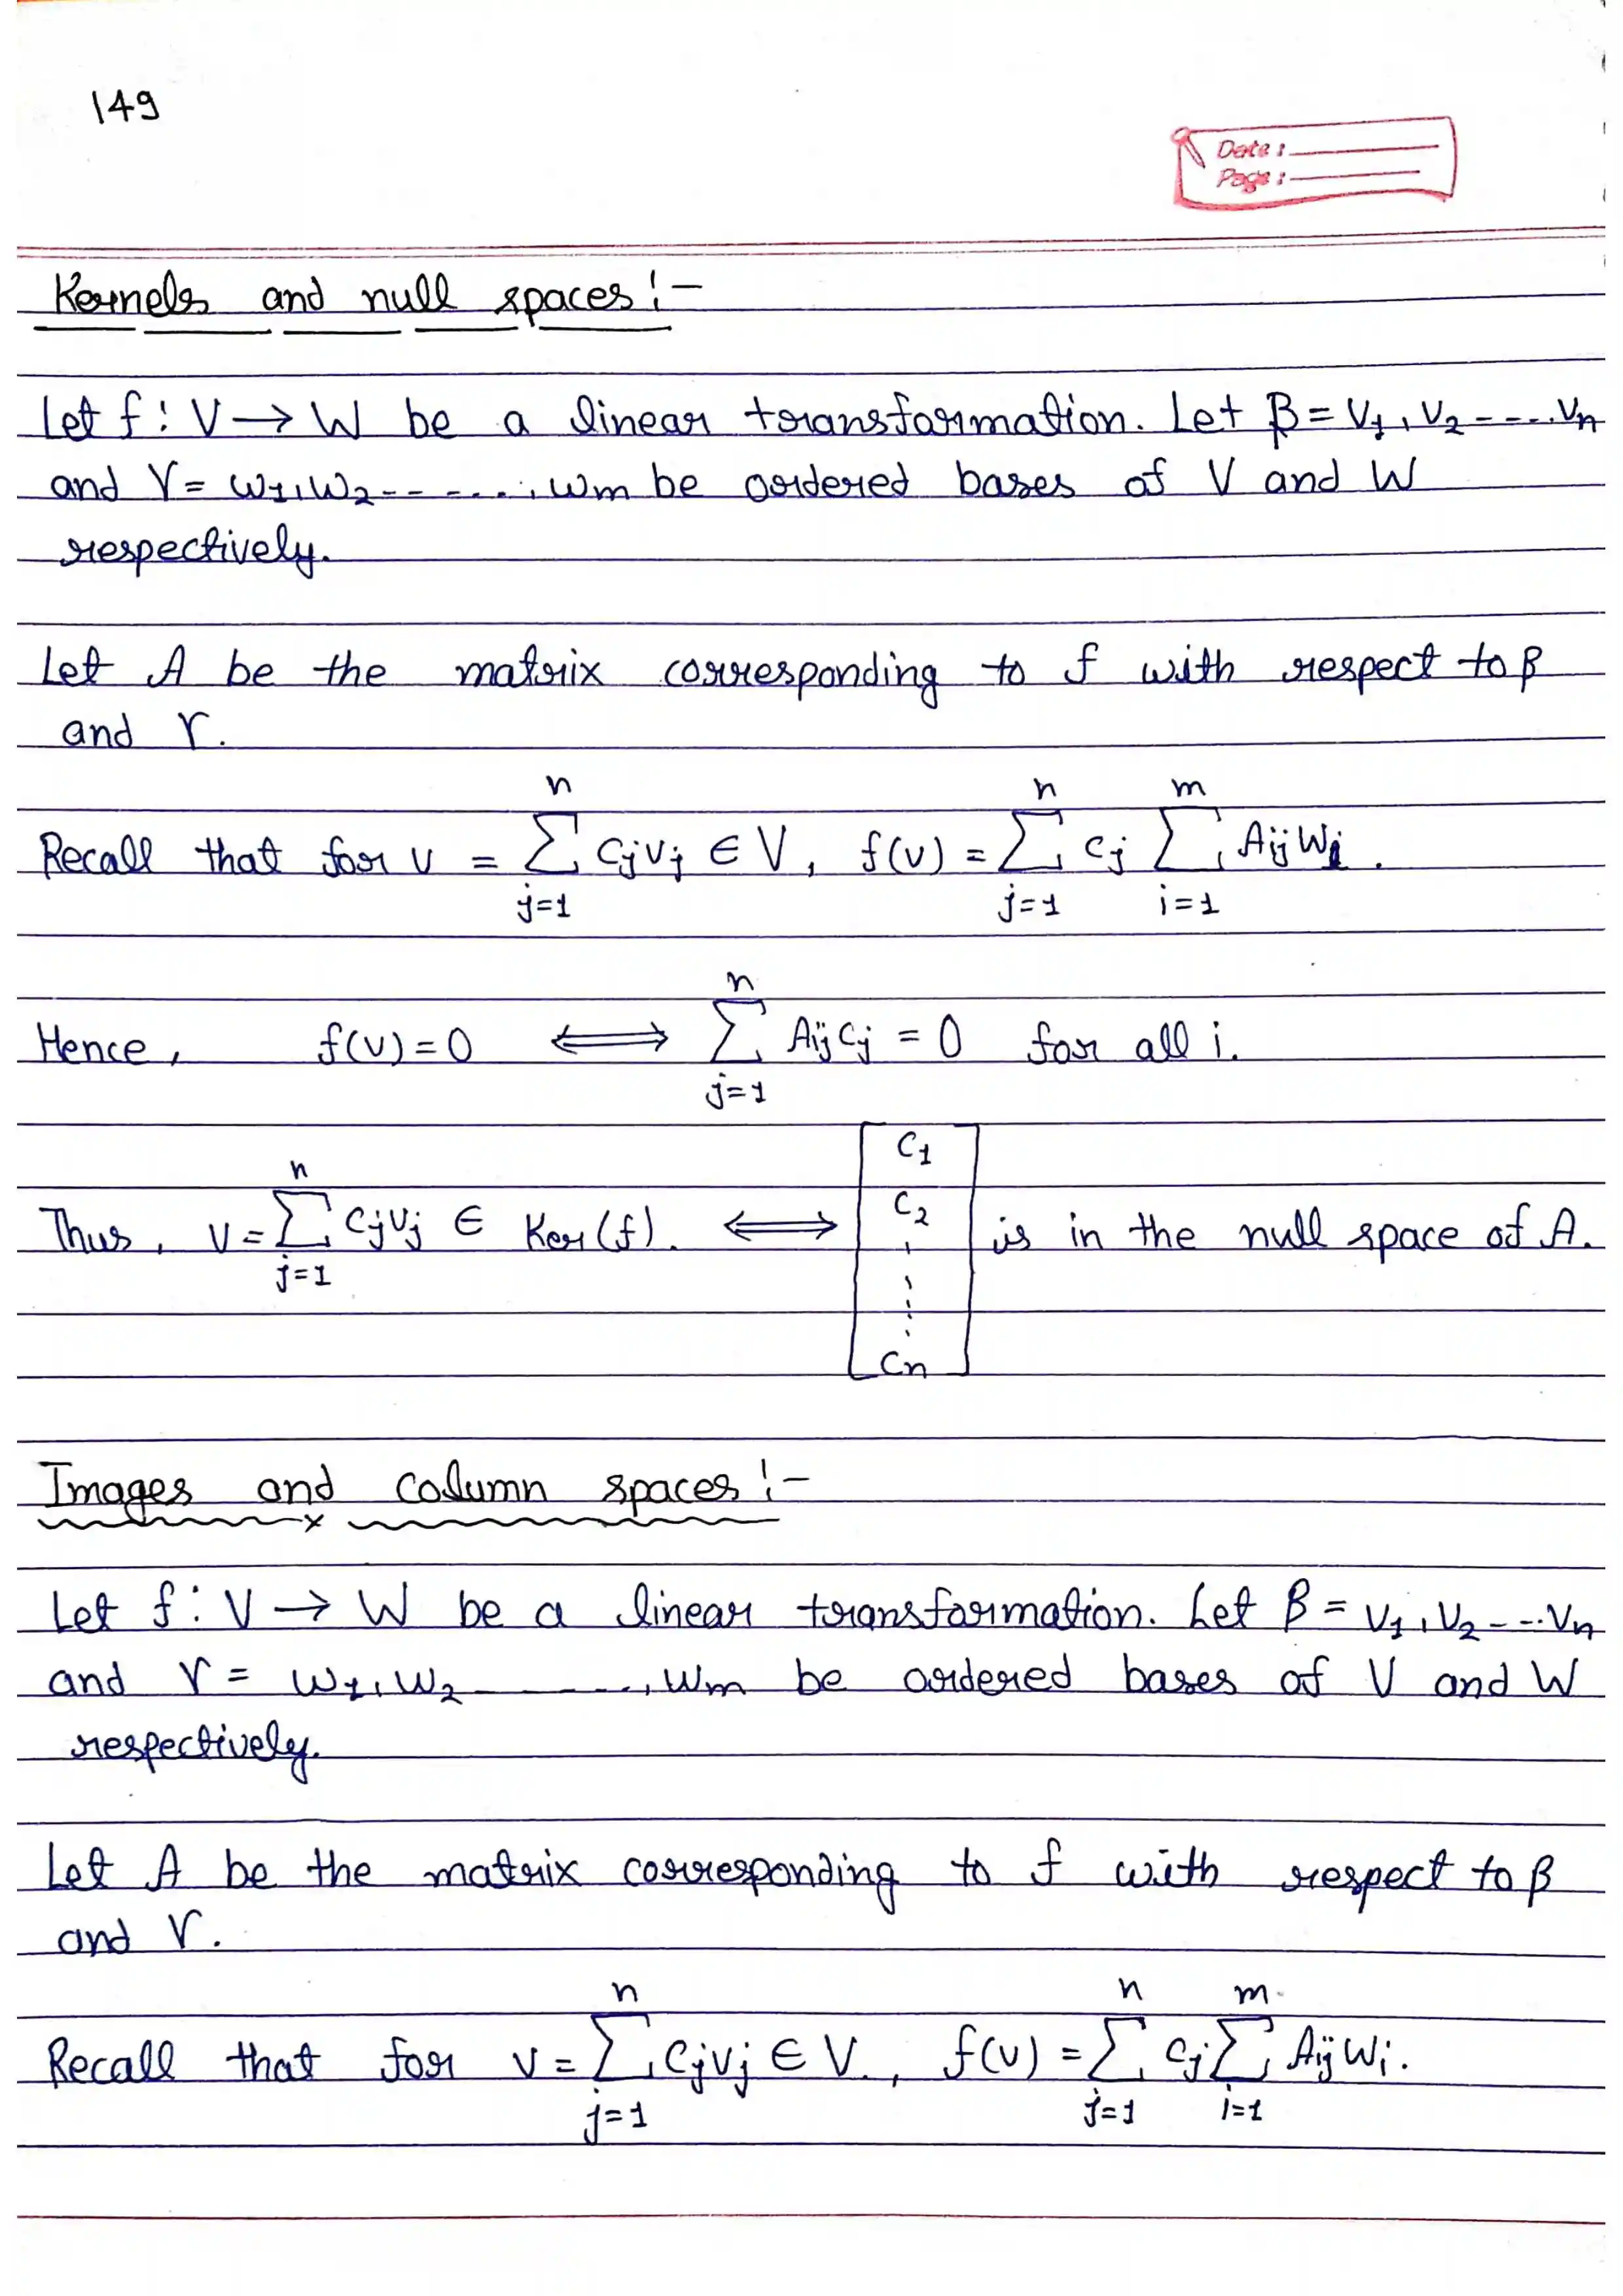 149
Date :
Page :
Kernels and null spaces :-
Let f : V → W be a linear transformation. Let β = v₁, v₂ -----.. vₙ
and γ = w₁, w₂ ------..., wm be ordered bases of V and W
respectively.
Let A be the matrix corresponding to f with respect to β
and γ.
Recall that for v = ∑_{j=1}^{n} cⱼvⱼ ∈ V, f(v) = ∑_{j=1}^{n} cⱼ ∑_{i=1}^{m} Aᵢⱼ wᵢ.
Hence, f(v) = 0 ⟺ ∑_{j=1}^{n} Aᵢⱼ cⱼ = 0 for all i.
Thus, v = ∑_{j=1}^{n} cⱼvⱼ ∈ Ker(f). ⟺ [c₁ c₂ ⋮ cₙ] is in the null space of A.
Images and column spaces :-
Let f : V → W be a linear transformation. Let β = v₁, v₂ --.. vₙ
and γ = w₁, w₂ ------..., wm be ordered bases of V and W
respectively.
Let A be the matrix corresponding to f with respect to β
and γ.
Recall that for v = ∑_{j=1}^{n} cⱼvⱼ ∈ V., f(v) = ∑_{j=1}^{n} cⱼ ∑_{i=1}^{m} Aᵢⱼ wᵢ.